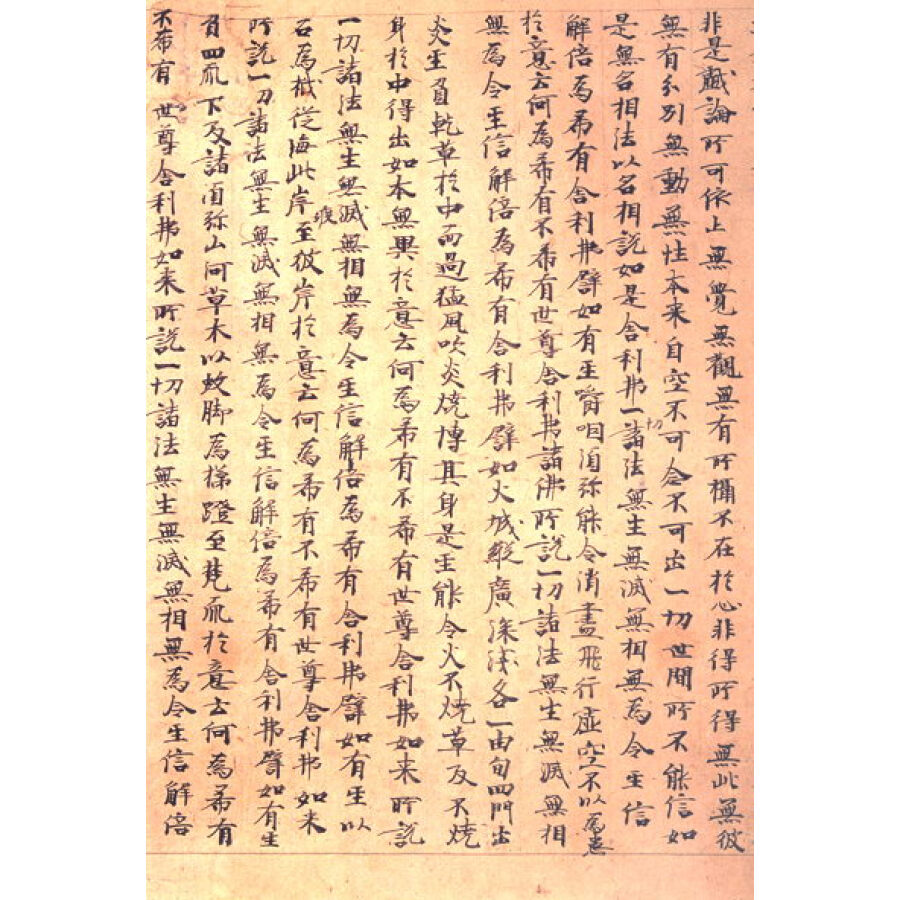 非是戲論所可依止無覺無觀無有所攝不在於心非得所得無此無彼
無有分別無動無性本来自空不可念不可出一切世間所不能信如
是無名相法以名相說如是舍利弗一切諸法無生無滅無相無為令生信
解倍為希有舍利弗譬如有生嚼咽須弥能令消盡飛行虛空不以為患
於意云何為希有不希有世尊舍利弗諸佛所說一切諸法無生無滅無相
無為令生信解倍為希有舍利弗譬如火城縱廣深淺各一由旬四門出
炎生負乾草於中而過猛風吹炎燒博其身是生能令火不燒草及不燒
身於中得出如本無異於意云何為希有不希有世尊舍利弗如来所說
一切諸法無生無滅無相無為令生信解倍為希有舍利弗譬如有生以
石為栰從海此岸至彼岸於意云何為希有不希有世尊舍利弗如来
所說一切諸法無生無滅無相無為令生信解倍為希有舍利弗譬如有生
負四天下及諸須弥山河草木以蚊脚為梯蹬至梵天於意云何為希有
不希有世尊舍利弗如来所說一切諸法無生無滅無相無為令生信解倍